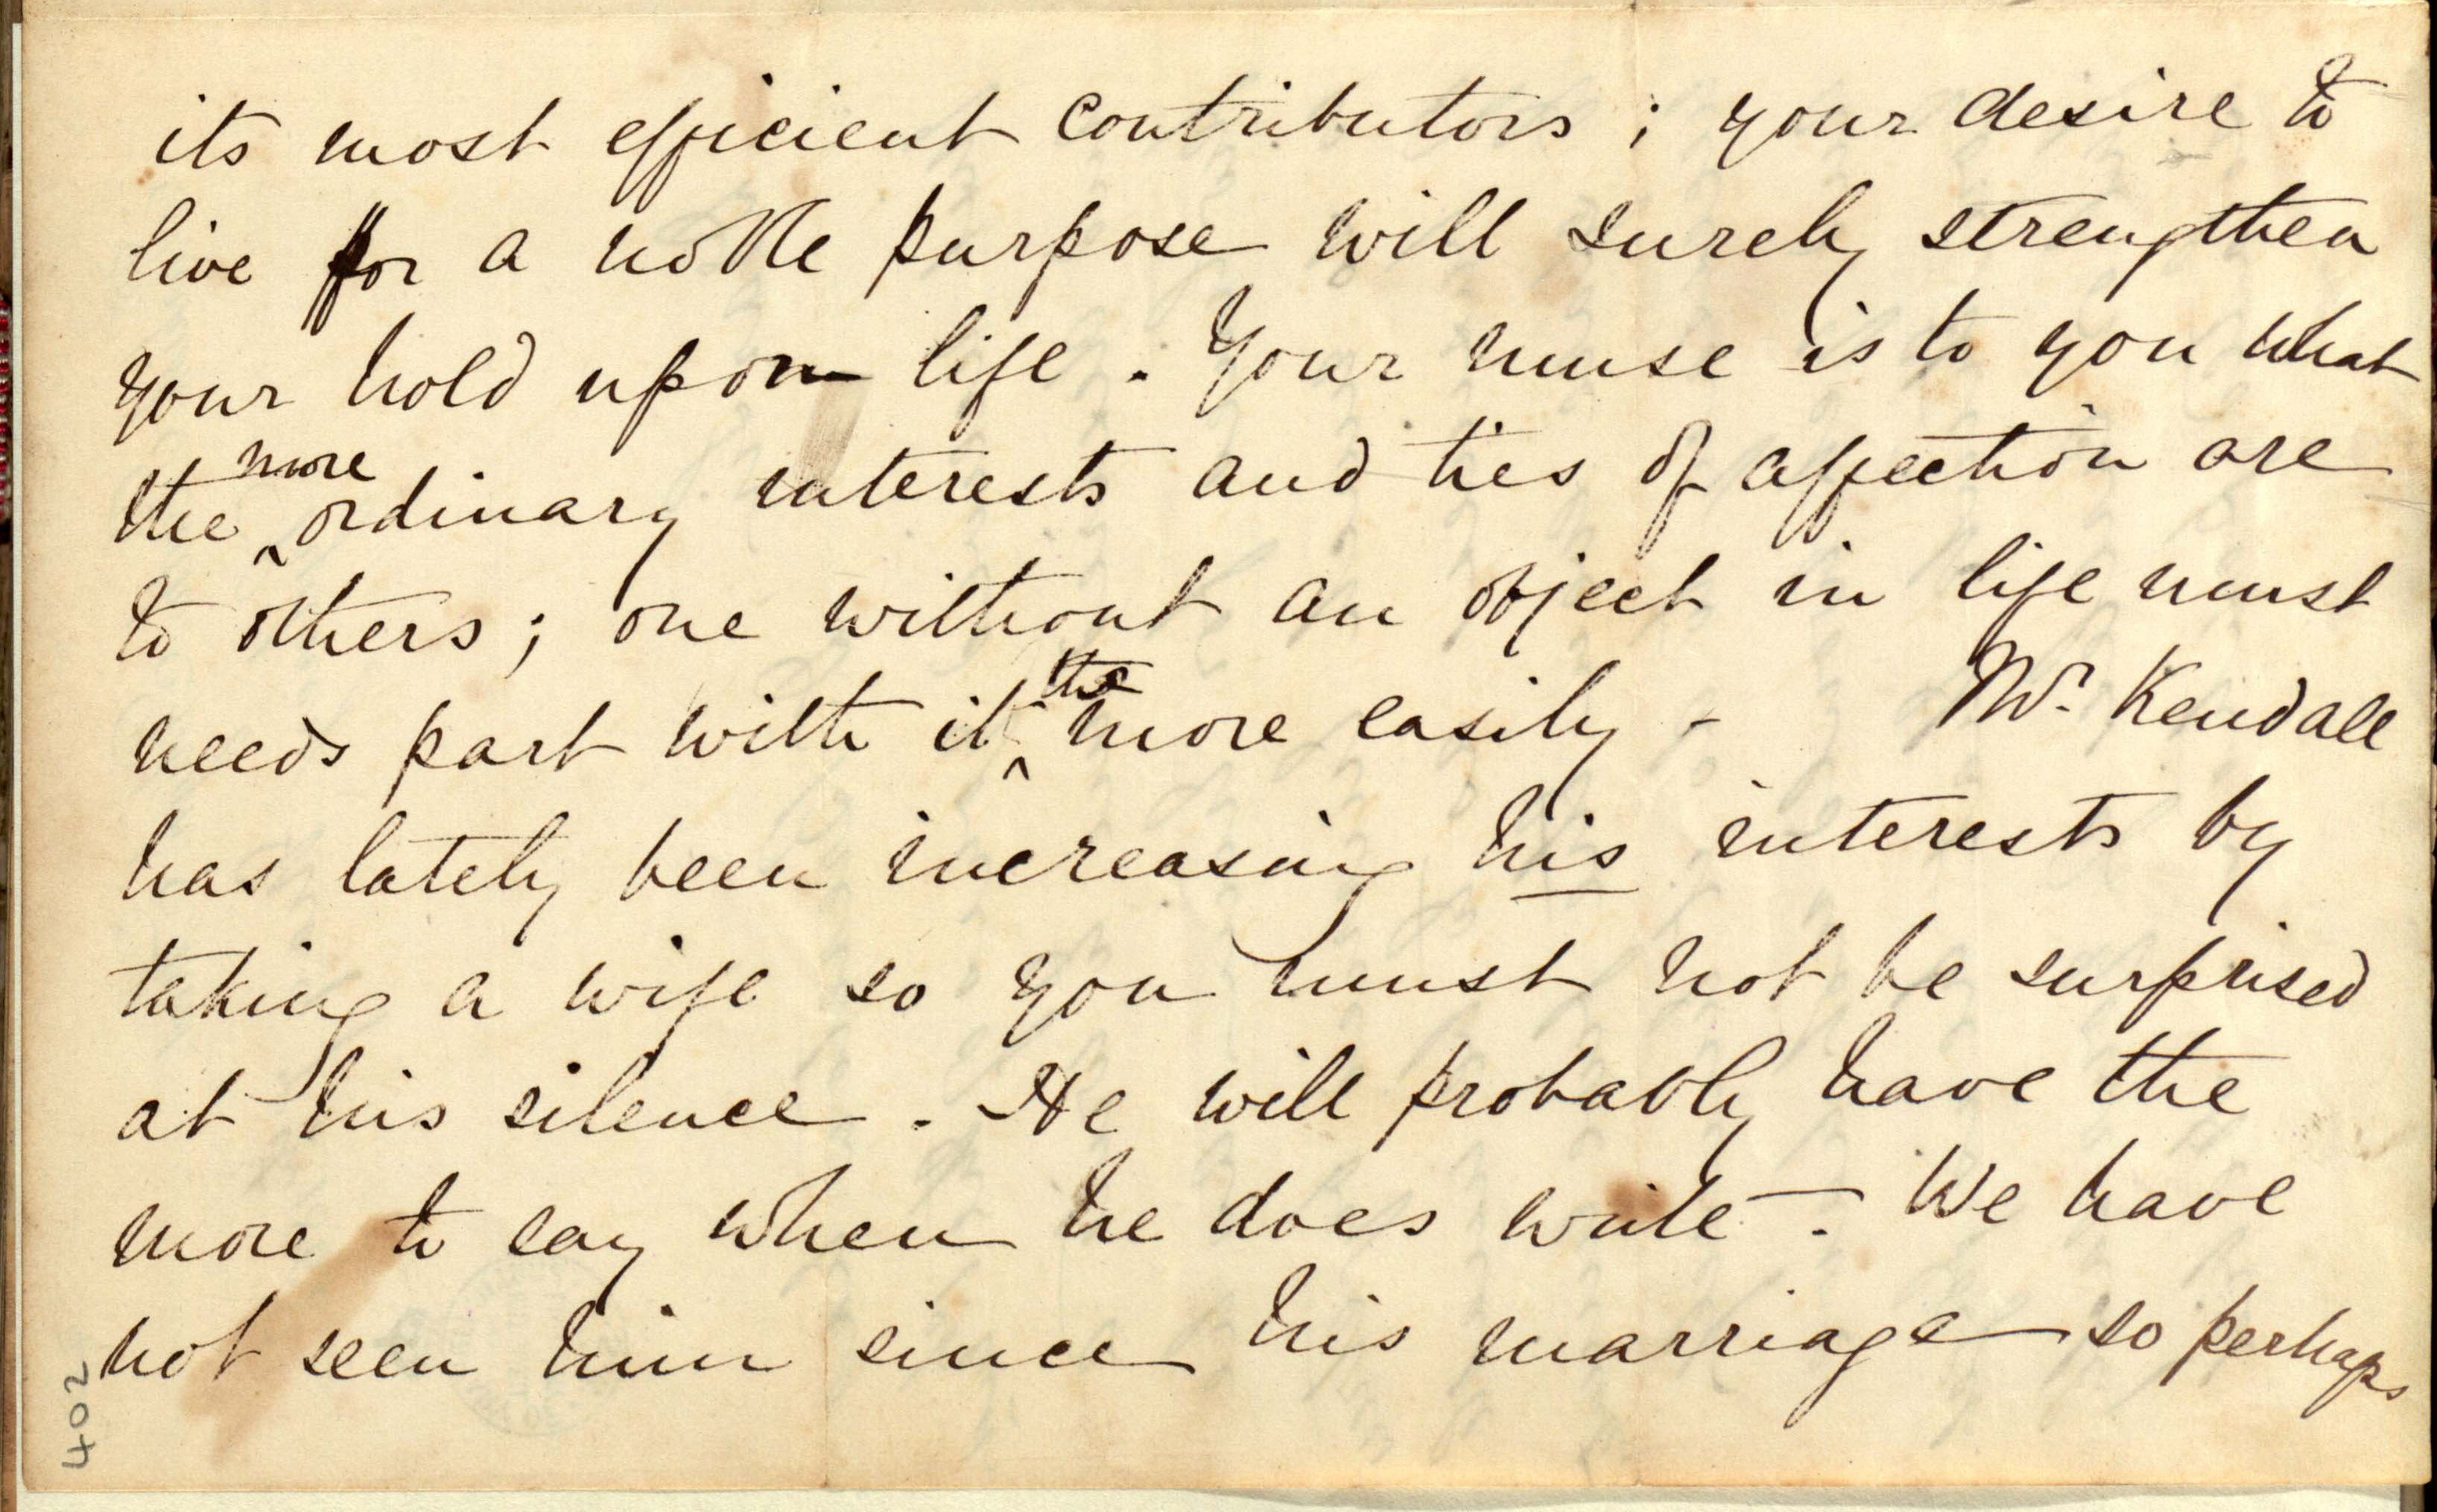 its most efficient contributors ; your desire to
live for a noble purpose will surely strengthen
your hold upon life . Your muse is to you what
the more ordinary interests and ties of affection are
to others ; one without an object in life must
needs part with it the more easily - Mr. Kendall
has lately been increasing his interests by
taking a wife so you must not be surprised
at his silence . He will probably have the
more to say when he does write - . We have
not seen him since his marriage so perhaps
402